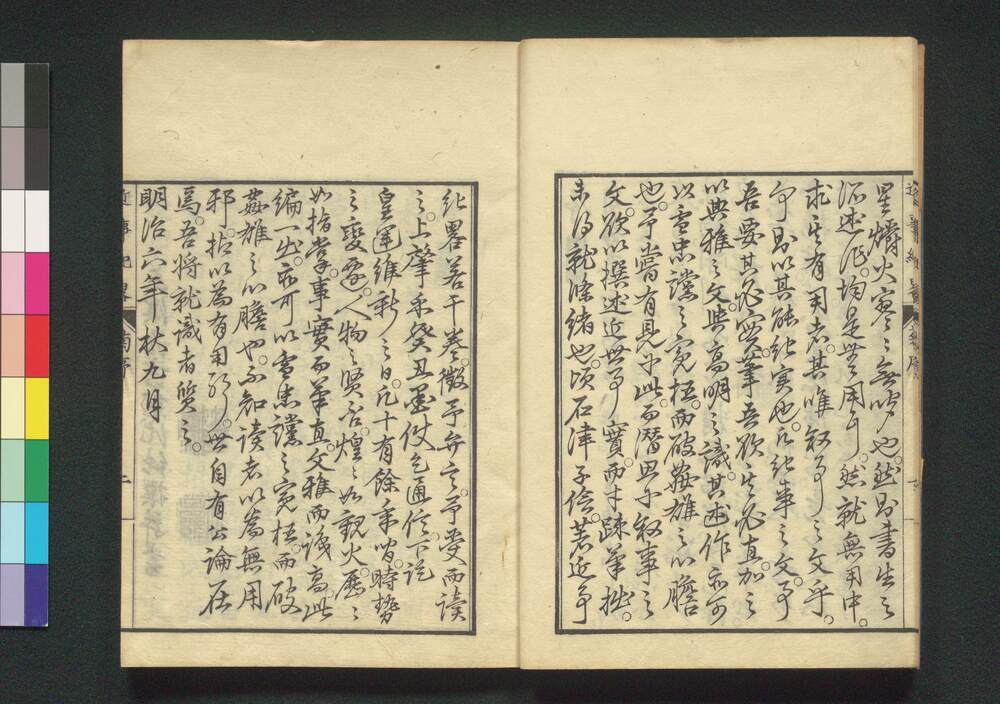 星爝火寥々無幾也。然則書生之
所述作。均是無用已。然就無用中。
求其有用者。其唯叙事之文乎。
何則以其能紀実也。凡紀事之文。事
吾要其必實。筆吾欲其必直。加之
以典雅之文。與高明之識。其述作亦可
以雪忠讜之寃枉。而破姦雄之心膽
也。予嘗有見于此。而潜思于叙事之
文。欲以撰述近世事實。而才疎筆拙。
未得就條緒也。頃石津子倹。著近事
紀畧若干巻。徴予弁言。予受而読
之。上肇米癸丑墨伐乞通信。下訖
皇運維新之日。凡十有餘年間。時勢
之變遷。人物之賢否。煌々如観火。歴々
如指掌。事實而筆直。文雅而識高。此
編一出。亦可以雪忠讜之寃枉而破
姦雄之心膽也。不知読者以為無用
邪。抑以為有用邪。世自有公論在
焉。吾将就識者質之。
明治六年秋九月